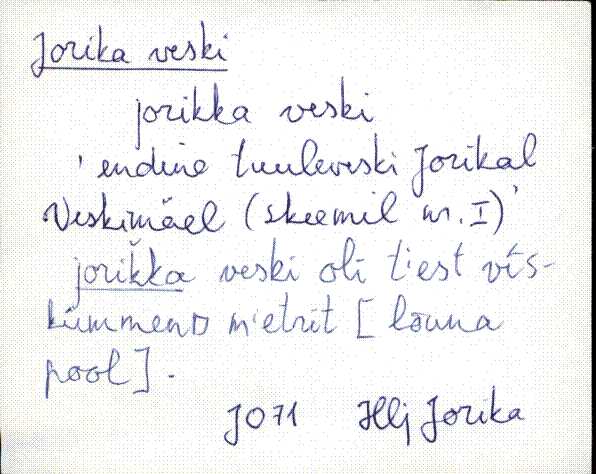 Jorika veski
jorikka veski
' endine tuuleveski Jorikal
Veskimäel (skeemil nr. I)'
jorikka veski oli t'iest vís-
kümmend m'etrit [lõuna
pool].
JO71 Hlj Jorika